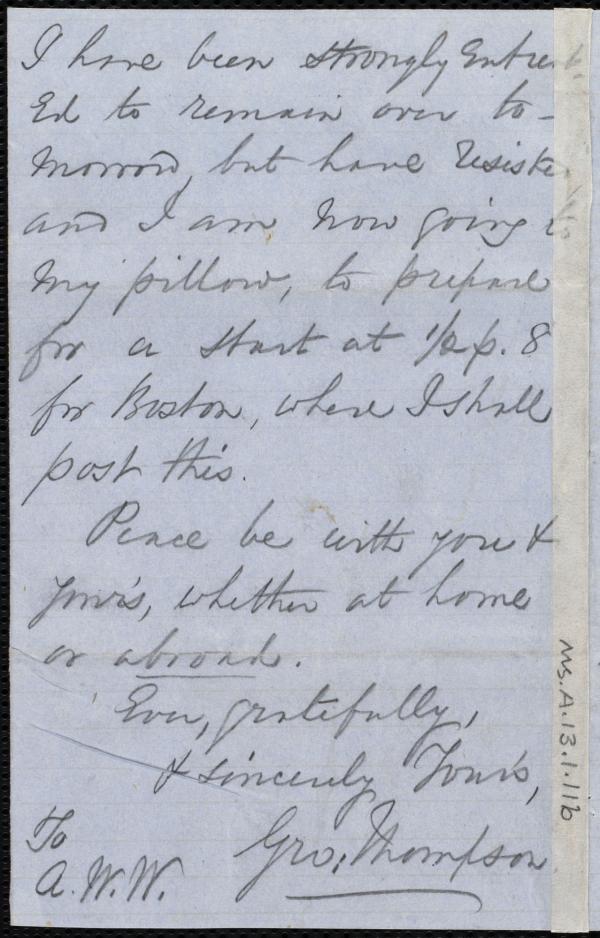 I have been strongly Entreat-
Ed to remain over to-
morrow, but have resisted
and I am now going to
my pillow, to prepare
for a start at 1/2 p. 8
for Boston, where I shall
post this.
Peace be with you &
yours, whether at home
or abroad.
Ever, gratefully,
& sincerely Yours,
Geo: Thompson
To
A. W. W.
Ms. A. 1.3. 1. 11b